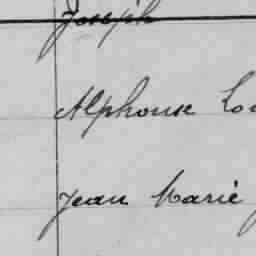 Joseph
Alphonse
Jean Marie